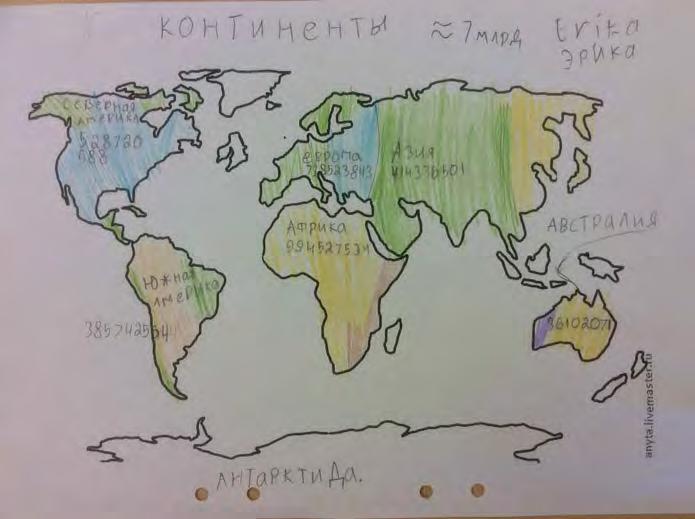 КОНТИНЕНТЫ ≈ 7 млрд Erika
Эрика
Северная
Америка
528720
588
Европа
738523843
Азия
414336501
Африка
994527534
АВСТРАЛИЯ
Южная
Америка
385742554
36102071
anyta.livemaster.ru
АНТАРКТИДА.